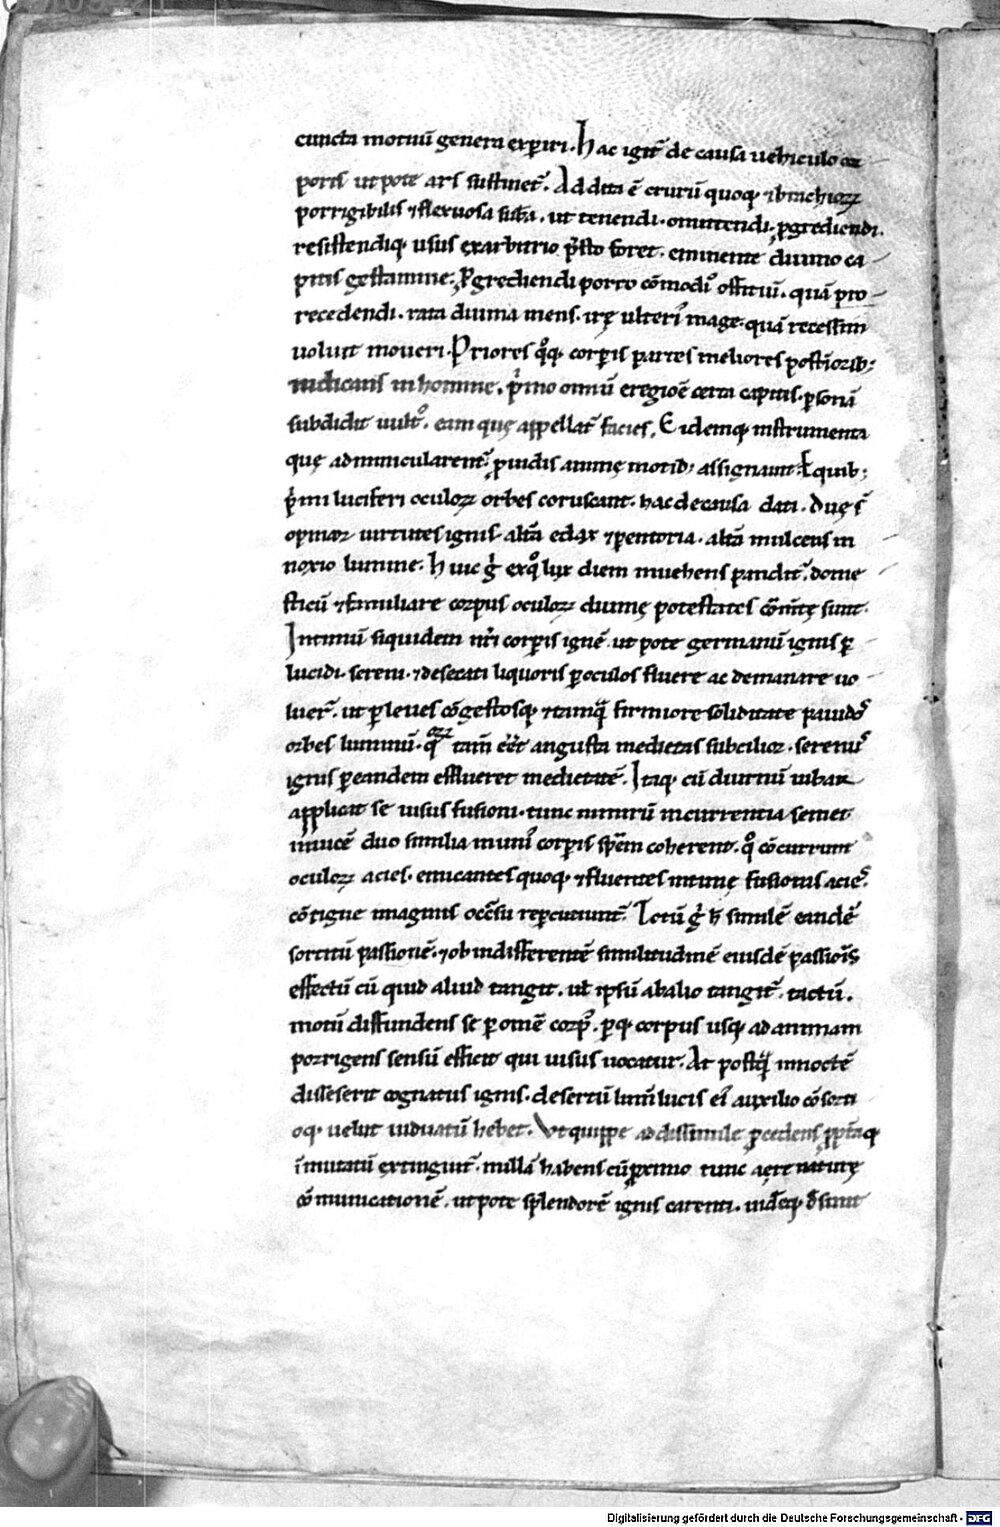 cuncta motuū genera experiri. hac igit̄ de causa uehiculo cor
poris utpote ars sustinet᷑. Addita ē crurū quoq; ⁊ brachioꝝ
porrigibilis ⁊ flexuosa subᷓa. ut tenendi. omittendi. ꝓgrediendi.
resistendiq; usus ex arbitrio p̄sto foret. eminente diuino ca
pitis gestamine. ꝓgrediendi porro cōmodiꝰ offitiū. quā pro
recedendi. rata diuina mens. irę ulteriꝰ mage. quā recessim
uoluit moueri. Priores qͦq; corꝑis partes meliores post̄iorib;
iudicans in homine. p̄mo omiū e regiōe certa capitis. ꝑsonā
subdidit uultꝰ. eam quę appellat᷑ facies. Eidemq; instrumenta
quę adminicularent᷑. ꝓuidis animę motib; assignauit. E quib;
p̄mi luciferi oculoꝝ orbes coruscant. hac de causa dati. Duę sᷓ
opinor uirtutes ignis. altᷓa edax ⁊ ꝑentoria. altᷓa mulcens in
noxio lumine. huic ḡ exqͦ lux diem inuehens pandit᷑. dome
sticū ⁊ familiare corpus oculoꝝ diuinę potestates cōm̄tę sunt.
Intimū siquidem nr̄i corꝑis ignē. utpote germanū ignis ꝑ
lucidi. sereni. ⁊ desecati liquoris ꝑ oculos fluere ac demanare uo
luer̄. ut ꝑ leues cōgestosq; ⁊ tamqᷓ firmiore soliditate ꝓuidos
orbes luminū. qͣꝝ tam̄ eēt angusta medietas subtilior. serenꝰ
ignis ꝑ eandem efflueret medietatē. Itaq; cū diurnū iubar
applicat se uisus fusioni. tunc nimirū incurrentia semet
inuicē duo similia in uniꝰ corꝑis spēm coherent. qͦ cōcurrunt
oculoꝝ acies. emicantes quoq; ⁊ fluentes intimę fusionis acieꝰ.
cōtiguę imaginis occ̄su reꝑcutiunt᷑. Totū ḡ h̄ similē eandē
sortitū passionē. ⁊ ob indifferentē similitudinē eiusdē passiōis
effectū cū quid aliud tangit. ut̄ ipsū ab alio tangit᷑. tactū.
motū diffundens se ꝑ omē corpꝰ. ꝑq; corpus usq; ad animam
porrigens sensū efficit qui uisus uocatur. At postqᷓ in noctē
disseserit cognatus ignis. desertū lum̄ lucis eiꝰ auxilio cōsorti
oq; uelut uiduatū hebet. Vt quippe ad dissimile ꝓcedens ꝓpt̄aq;
īmutatū extinguit᷑. nullā habens cū proximo tunc aere naturę
cōmunicationē. utpote splendorē ignis carenti. uid̄eq; d̄sinit
Digitalisierung gefördert durch die Deutsche Forschungsgemeinschaft - DFG